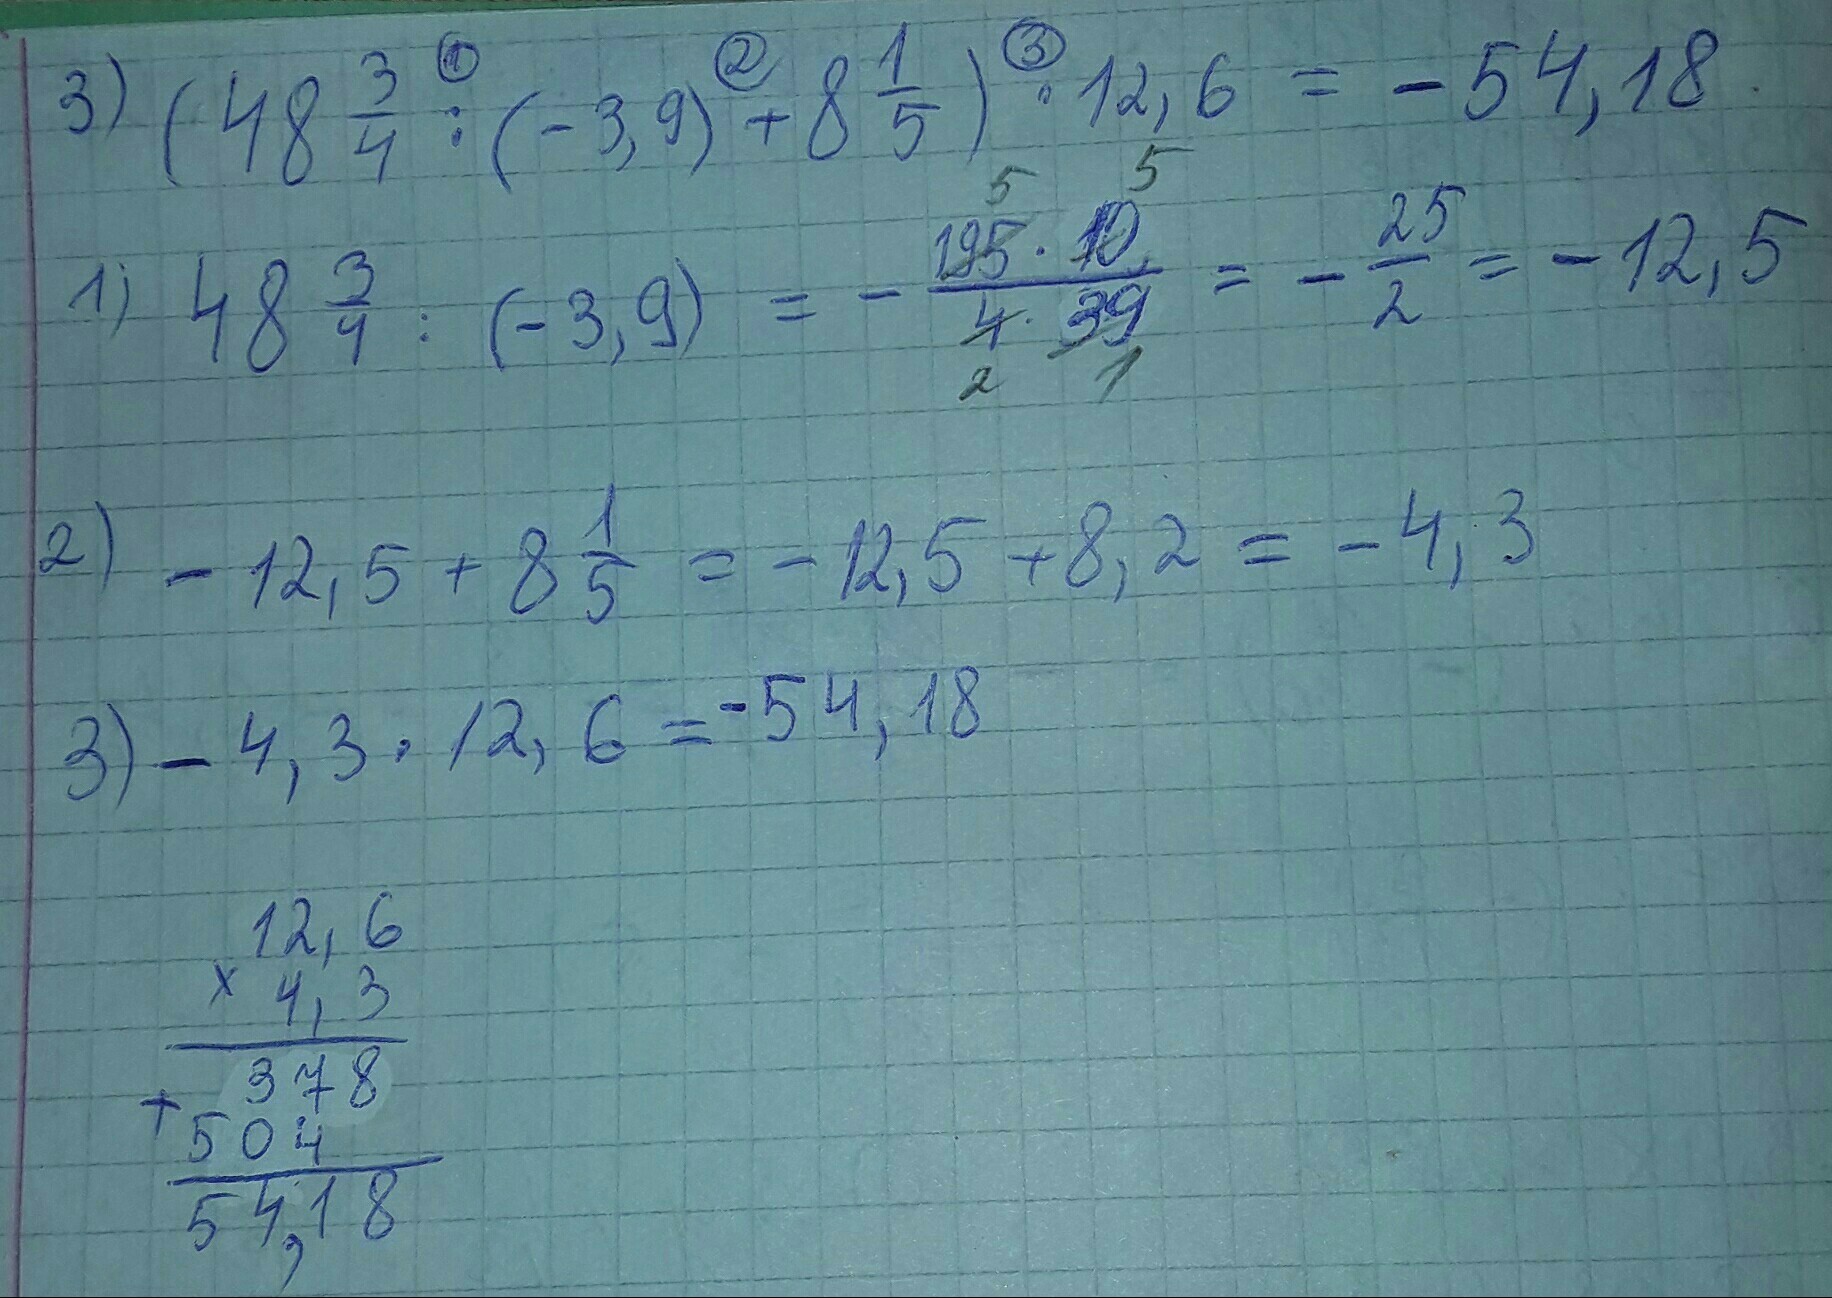 3) (48 3/4 : (-3,9) + 8 1/5) · 12,6 = -54,18
① ② ③
1) 48 3/4 : (-3,9) = - 195 · 10 / 4 · 39 = - 25/2 = -12,5
5 5
2 1
2) -12,5 + 8 1/5 = -12,5 + 8,2 = -4,3
3) -4,3 · 12,6 = -54,18
12,6
× 4,3
378
+ 504
54,18